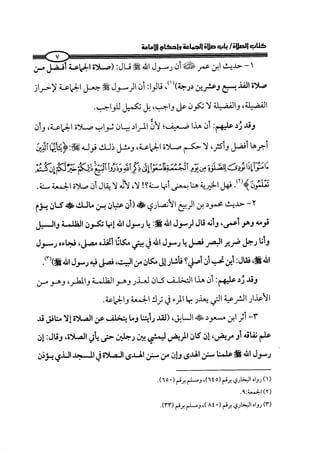 كتاب الصلاة/ باب صلاة الجماعة وإحكام الإمامة
٧
١- حديث ابن عمر ﷺ أن رسول الله ﷺ قال: (صلاة الجماعة أفضل من
صلاة الفذ بسبع وعشرين درجة)(١)، قالوا: أن الرسول ﷺ جعل الجماعة لإحراز
الفضيلة، والفضيلة لا تكون على واجب، بل تكميل للواجب.
وقد رُد عليهم: أن هذا ضعيف؛ لأن المراد بيان ثواب صلاة الجماعة، وأن
أجرها أفضل وأكثر، لا حكم صلاة الجماعة، ومثل ذلك قوله ﷺ: ﴿يَا أَيُّهَا الَّذِينَ
آمَنُوا إِذَا نُودِيَ لِلصَّلَاةِ مِن يَوْمِ الْجُمُعَةِ فَاسْعَوْا إِلَى ذِكْرِ اللَّهِ وَذَرُوا الْبَيْعَ ذَلِكُمْ خَيْرٌ لَّكُمْ إِن كُنتُمْ
تَعْلَمُونَ﴾(٢)، فهل الخيرية هنا بمعنى أنها سنة؟! لا، لأنه لا يقال أن صلاة الجمعة سنة.
٢- حديث محمود بن الربيع الأنصاري ﷺ (أن عتبان بن مالك ﷺ كان يؤم
قومه وهو أعمى، وأنه قال لرسول الله ﷺ: يا رسول الله إنها تكون الظلمة والسيل
وأنا رجل ضرير البصر فصل يا رسول الله في بيتي مكانًا أتخذه مصلى، فجاءه رسول
الله ﷺ، فقال: أين تحب أن أصلي؟ فأشار إلى مكان من البيت، فصلى فيه رسول الله ﷺ)(٣).
وقد رُد عليهم: أن هذا التخلف كان لعذر وهو الظلمة والمطر، وهو من
الأعذار الشرعية التي يعذر بها المرء في ترك الجمعة والجماعة.
٣- أثر ابن مسعود ﷺ السابق، (لقد رأيتنا وما يتخلف عن الصلاة إلا منافق قد
علم نفاقه أو مريض، إن كان المريض ليمشي بين رجلين حتى يأتي الصلاة، وقال: إن
رسول الله ﷺ علمنا سنن الهدى وإن من سنن الهدى الصلاة في المسجد الذي يؤذن
(١) رواه البخاري برقم (٦٤٥)، ومسلم برقم (٦٥٠).
(٢) الجمعة:٩.
(٣) رواه البخاري برقم (٨٤٠)، ومسلم برقم (٣٣).